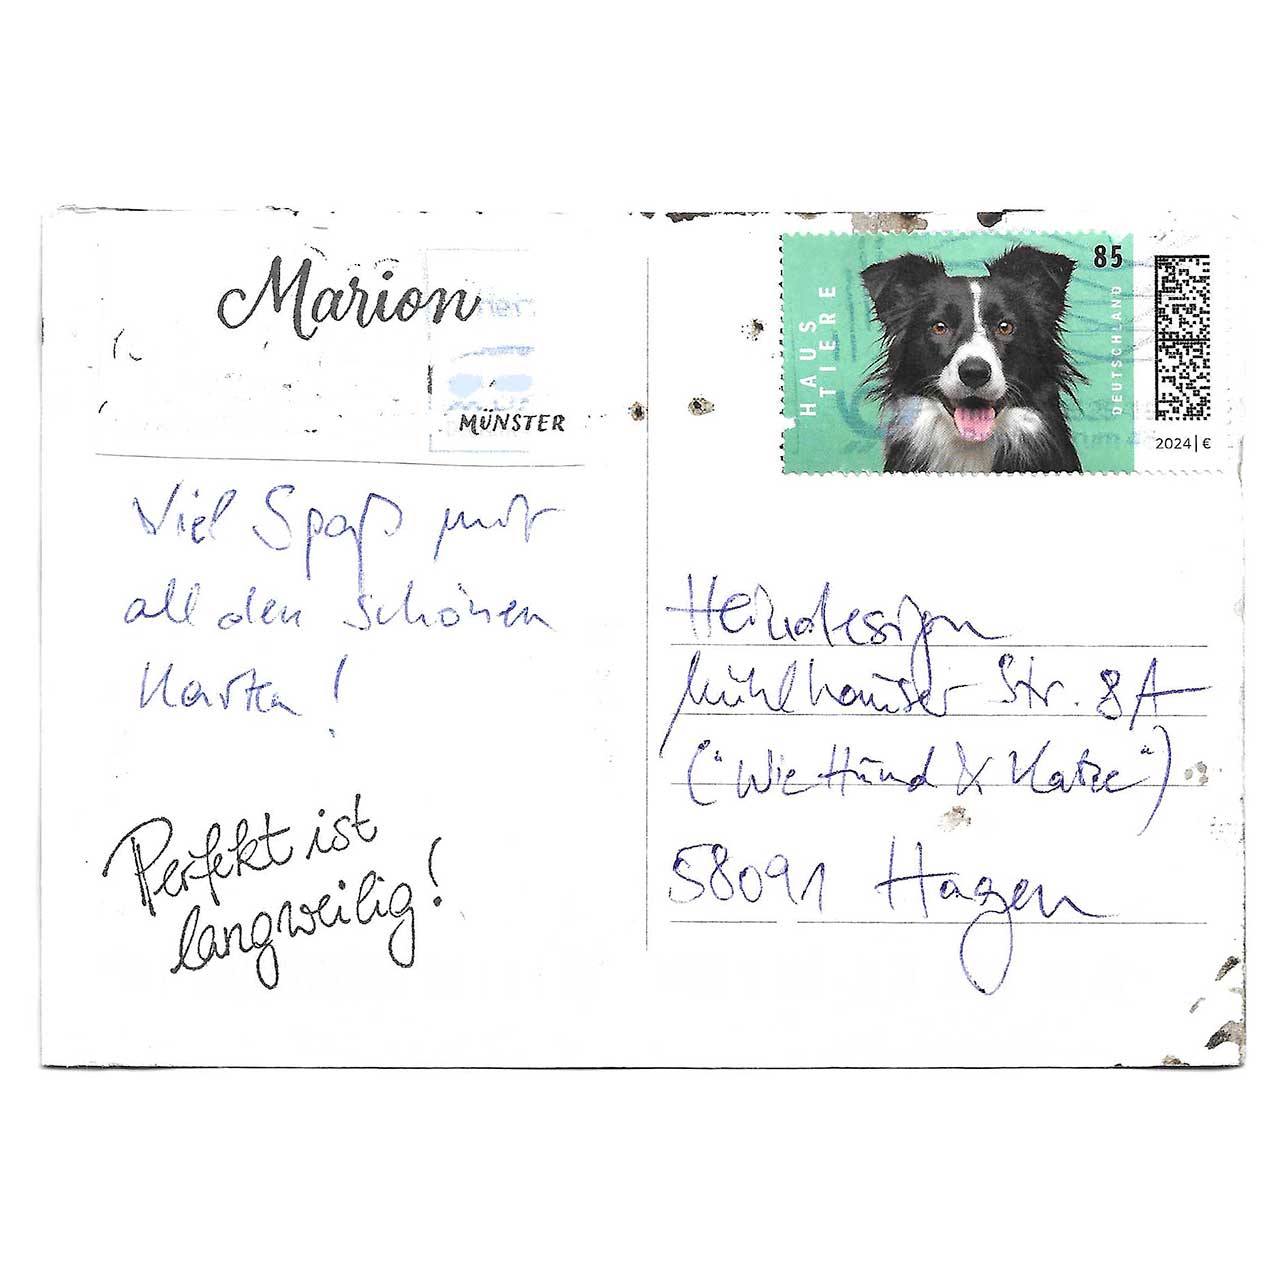 Marion
MÜNSTER
Viel Spaß mit
all den schönen
Karten!
Perfekt ist
langweilig!
HAUS
TIERE
85
DEUTSCHLAND
2024 | €
Heindesign
Mühlhauser Str. 8A
("Wie Hund & Katze")
58091 Hagen